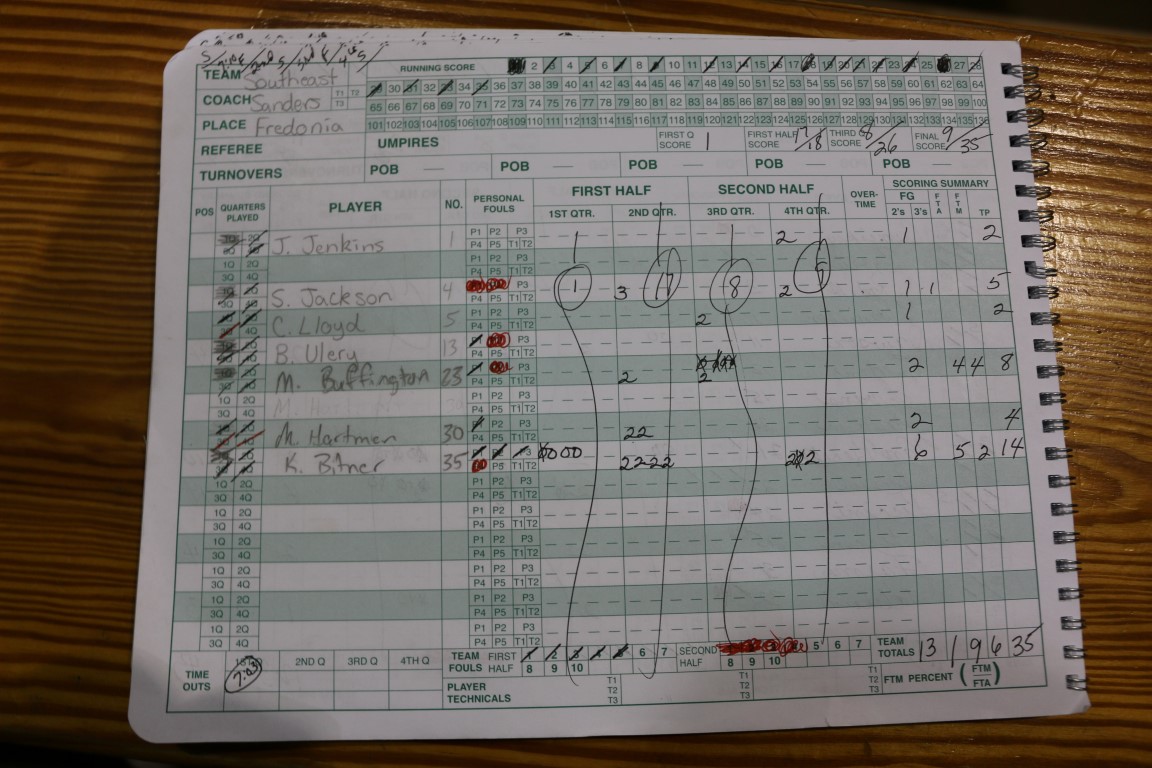 TEAM Southeast
RUNNING SCORE 2 3 4 5 6 7 8 9 10 11 12 13 14 15 16 17 18 19 20 21 22 23 24 25 26 27 28
29 30 31 32 33 34 35 36 37 38 39 40 41 42 43 44 45 46 47 48 49 50 51 52 53 54 55 56 57 58 59 60 61 62 63 64
COACH Sanders T1 T2 T3
65 66 67 68 69 70 71 72 73 74 75 76 77 78 79 80 81 82 83 84 85 86 87 88 89 90 91 92 93 94 95 96 97 98 99 100
PLACE Fredonia
101 102 103 104 105 106 107 108 109 110 111 112 113 114 115 116 117 118 119 120 121 122 123 124 125 126 127 128 129 130 131 132 133 134 135 136
REFEREE UMPIRES FIRST Q SCORE 1 FIRST HALF SCORE 17/18 THIRD SCORE 8/26 FINAL SCORE 9/35
TURNOVERS POB — POB — POB — POB — POB —
POS QUARTERS PLAYED PLAYER NO. PERSONAL FOULS FIRST HALF SECOND HALF OVER-TIME SCORING SUMMARY
1ST QTR. 2ND QTR. 3RD QTR. 4TH QTR. FG 2's 3's FTA FTM TP
J. Jenkins 1 P1 P2 P3 P4 P5 T1 T2 2 1 2
1Q 2Q 3Q 4Q P1 P2 P3 P4 P5 T1 T2
S. Jackson 4 P3 P4 P5 T1 T2 1 3 17 8 2 9 1 1 5
C. Lloyd 5 P1 P2 P3 P4 P5 T1 T2 2 1 2
B. Ulery 13 P3 P4 P5 T1 T2
M. Buffington 23 P3 P4 P5 T1 T2 2 2 2 4 4 8
1Q 2Q 3Q 4Q P1 P2 P3 P4 P5 T1 T2
M. Hartman 30 P2 P3 P4 P5 T1 T2 22 2 4
K. Bitner 35 P5 T1 T2 2222 6 5 2 14
1Q 2Q 3Q 4Q P1 P2 P3 P4 P5 T1 T2
1Q 2Q 3Q 4Q P1 P2 P3 P4 P5 T1 T2
1Q 2Q 3Q 4Q P1 P2 P3 P4 P5 T1 T2
1Q 2Q 3Q 4Q P1 P2 P3 P4 P5 T1 T2
1Q 2Q 3Q 4Q P1 P2 P3 P4 P5 T1 T2
1Q 2Q 3Q 4Q P1 P2 P3 P4 P5 T1 T2
TIME OUTS 7:03 2ND Q 3RD Q 4TH Q TEAM FOULS FIRST HALF 1 2 3 4 5 6 7 8 9 10 SECOND HALF 5 6 7 8 9 10 TEAM TOTALS 13 1 9 6 35
PLAYER TECHNICALS T1 T2 T3 T1 T2 T3 T1 T2 T3 FTM PERCENT (FTM/FTA)